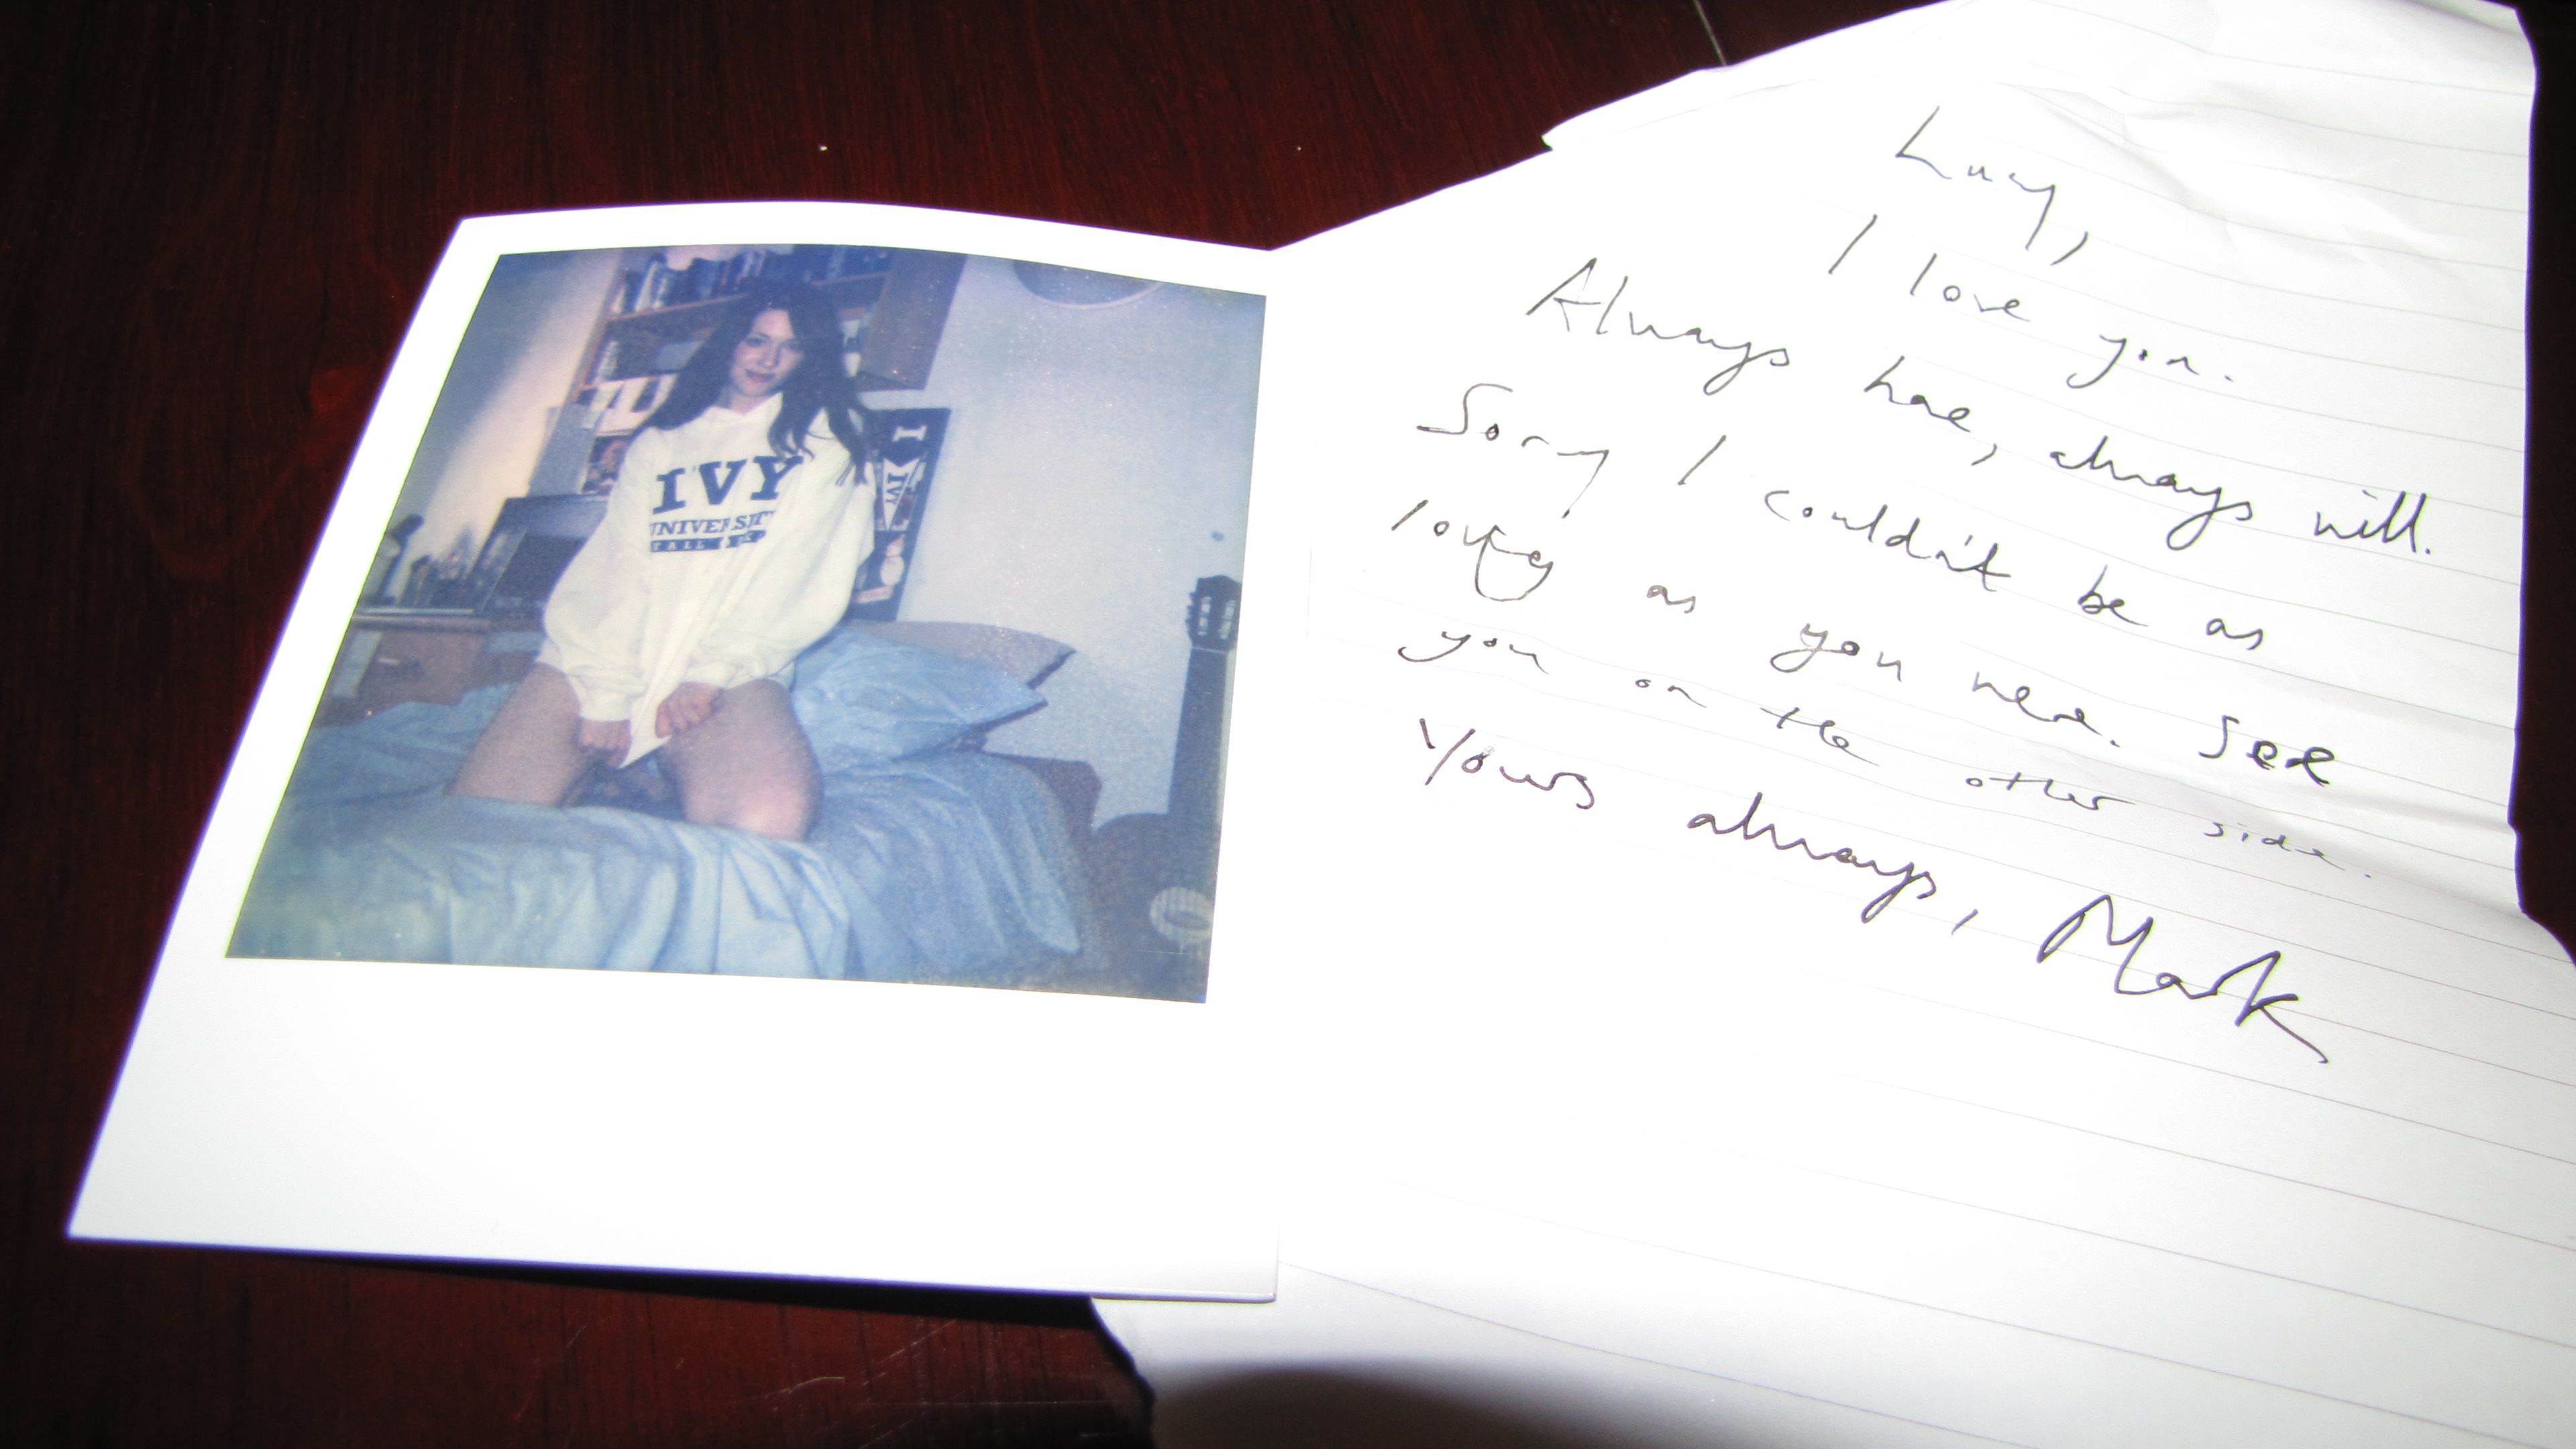 IVY
UNIVERSITY
I
IVY
Lucy,
I love you.
Always have, always will.
Sorry I couldn't be as
as you were. See
you on the other side.
Yours always, Mark